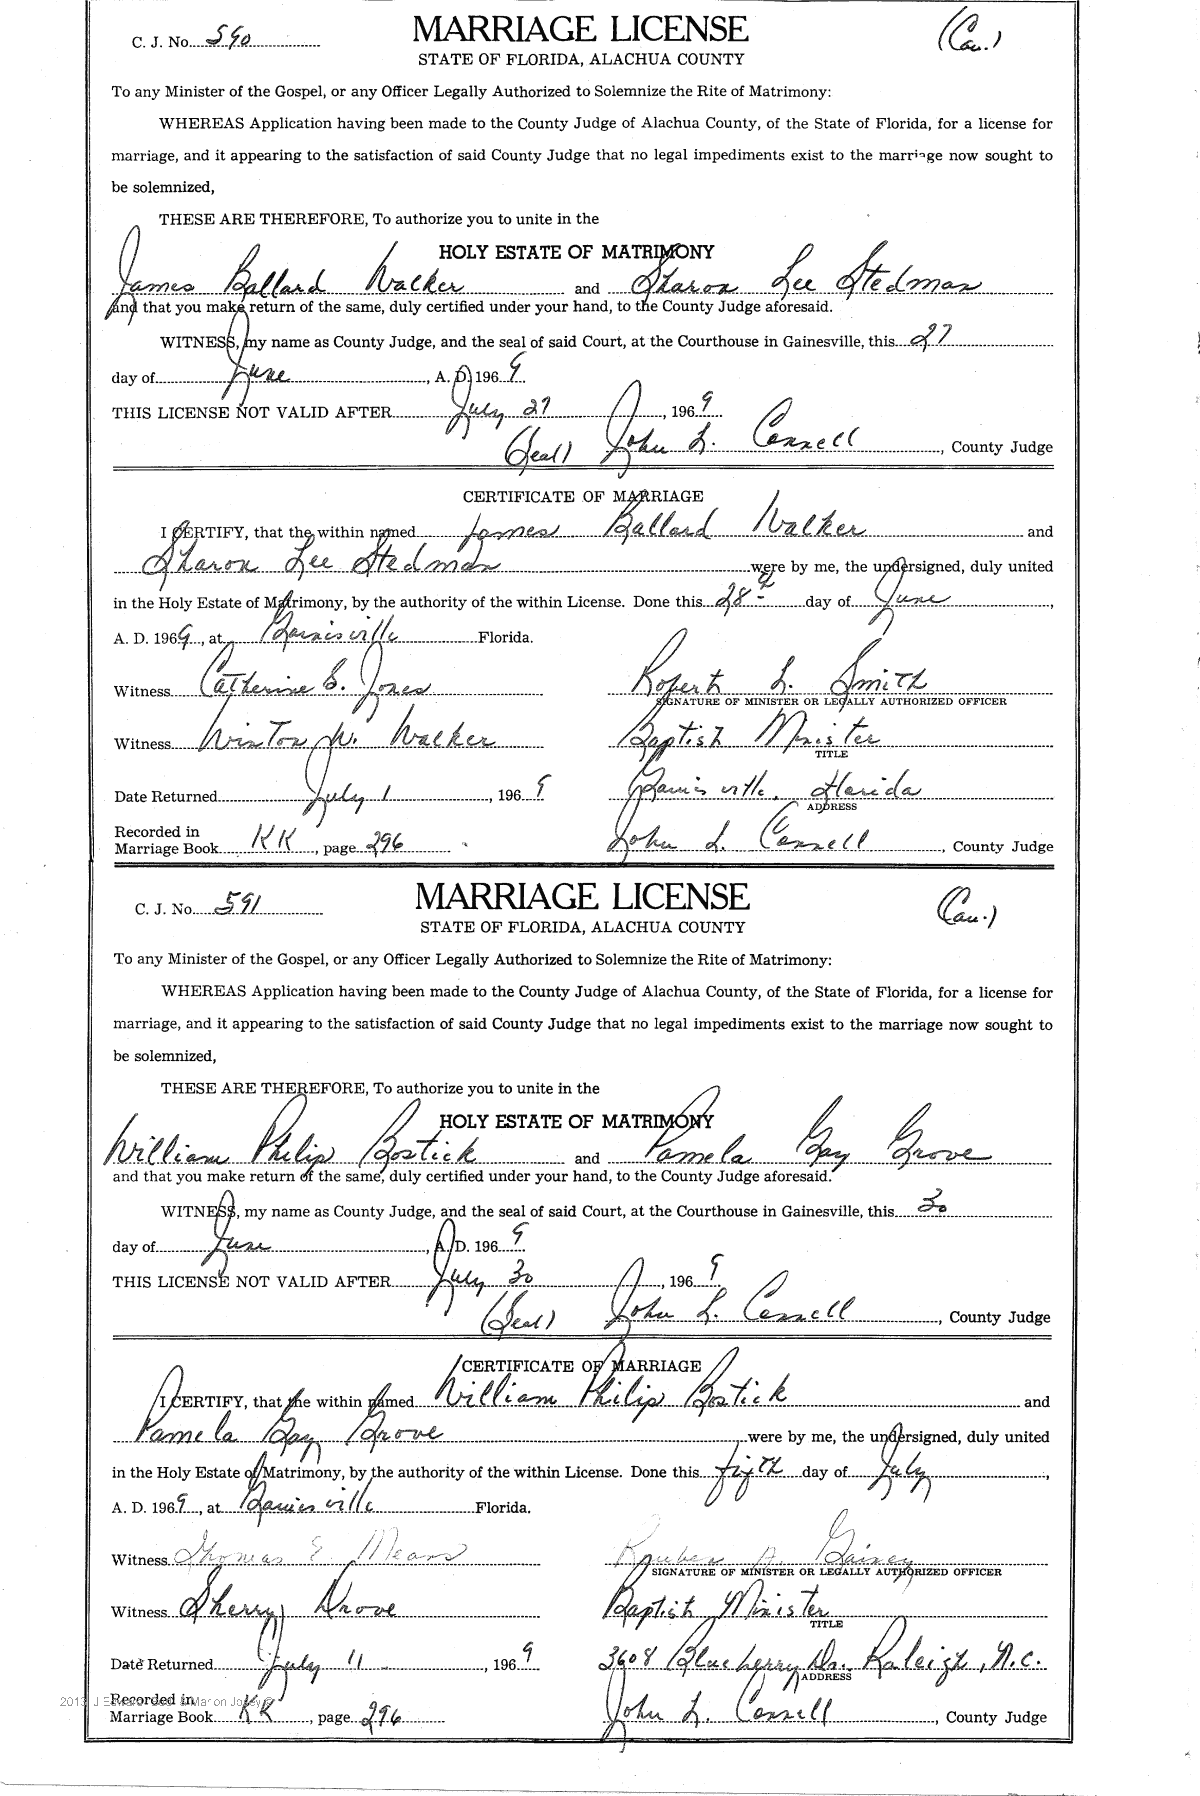 C. J. No. 590
MARRIAGE LICENSE
(Cau.)
STATE OF FLORIDA, ALACHUA COUNTY
To any Minister of the Gospel, or any Officer Legally Authorized to Solemnize the Rite of Matrimony:
WHEREAS Application having been made to the County Judge of Alachua County, of the State of Florida, for a license for
marriage, and it appearing to the satisfaction of said County Judge that no legal impediments exist to the marriage now sought to
be solemnized,
THESE ARE THEREFORE, To authorize you to unite in the
HOLY ESTATE OF MATRIMONY
James Ballard Walker and Sharon Lee Stedman
and that you make return of the same, duly certified under your hand, to the County Judge aforesaid.
WITNESS, my name as County Judge, and the seal of said Court, at the Courthouse in Gainesville, this 27
day of June, A. D. 1969
THIS LICENSE NOT VALID AFTER July 27, 1969
(Seal) John L. Connell, County Judge
CERTIFICATE OF MARRIAGE
I CERTIFY, that the within named James Ballard Walker and
Sharon Lee Stedman were by me, the undersigned, duly united
in the Holy Estate of Matrimony, by the authority of the within License. Done this 28th day of June,
A. D. 1969, at Gainesville Florida.
Witness Catherine S. Jones Robert L. Smith
SIGNATURE OF MINISTER OR LEGALLY AUTHORIZED OFFICER
Witness Winton W. Walker Baptist Minister
TITLE
Date Returned July 1, 1969 Gainesville, Florida
ADDRESS
Recorded in
Marriage Book KK, page 296 John L. Connell, County Judge
C. J. No. 591
MARRIAGE LICENSE
(Cau.)
STATE OF FLORIDA, ALACHUA COUNTY
To any Minister of the Gospel, or any Officer Legally Authorized to Solemnize the Rite of Matrimony:
WHEREAS Application having been made to the County Judge of Alachua County, of the State of Florida, for a license for
marriage, and it appearing to the satisfaction of said County Judge that no legal impediments exist to the marriage now sought to
be solemnized,
THESE ARE THEREFORE, To authorize you to unite in the
HOLY ESTATE OF MATRIMONY
William Philip Bostick and Pamela Gay Grove
and that you make return of the same, duly certified under your hand, to the County Judge aforesaid.
WITNESS, my name as County Judge, and the seal of said Court, at the Courthouse in Gainesville, this 30
day of June, A. D. 1969
THIS LICENSE NOT VALID AFTER July 30, 1969
(Seal) John L. Connell, County Judge
CERTIFICATE OF MARRIAGE
I CERTIFY, that the within named William Philip Bostick and
Pamela Gay Grove were by me, the undersigned, duly united
in the Holy Estate of Matrimony, by the authority of the within License. Done this fifth day of July,
A. D. 1969, at Gainesville Florida.
Witness Thomas E. Means Reuben A. Gainey
SIGNATURE OF MINISTER OR LEGALLY AUTHORIZED OFFICER
Witness Sherry Grove Baptist Minister
TITLE
Date Returned July 11, 1969 3608 Blueberry Dr. Raleigh, N.C.
ADDRESS
Recorded in
Marriage Book KK, page 296 John L. Connell, County Judge